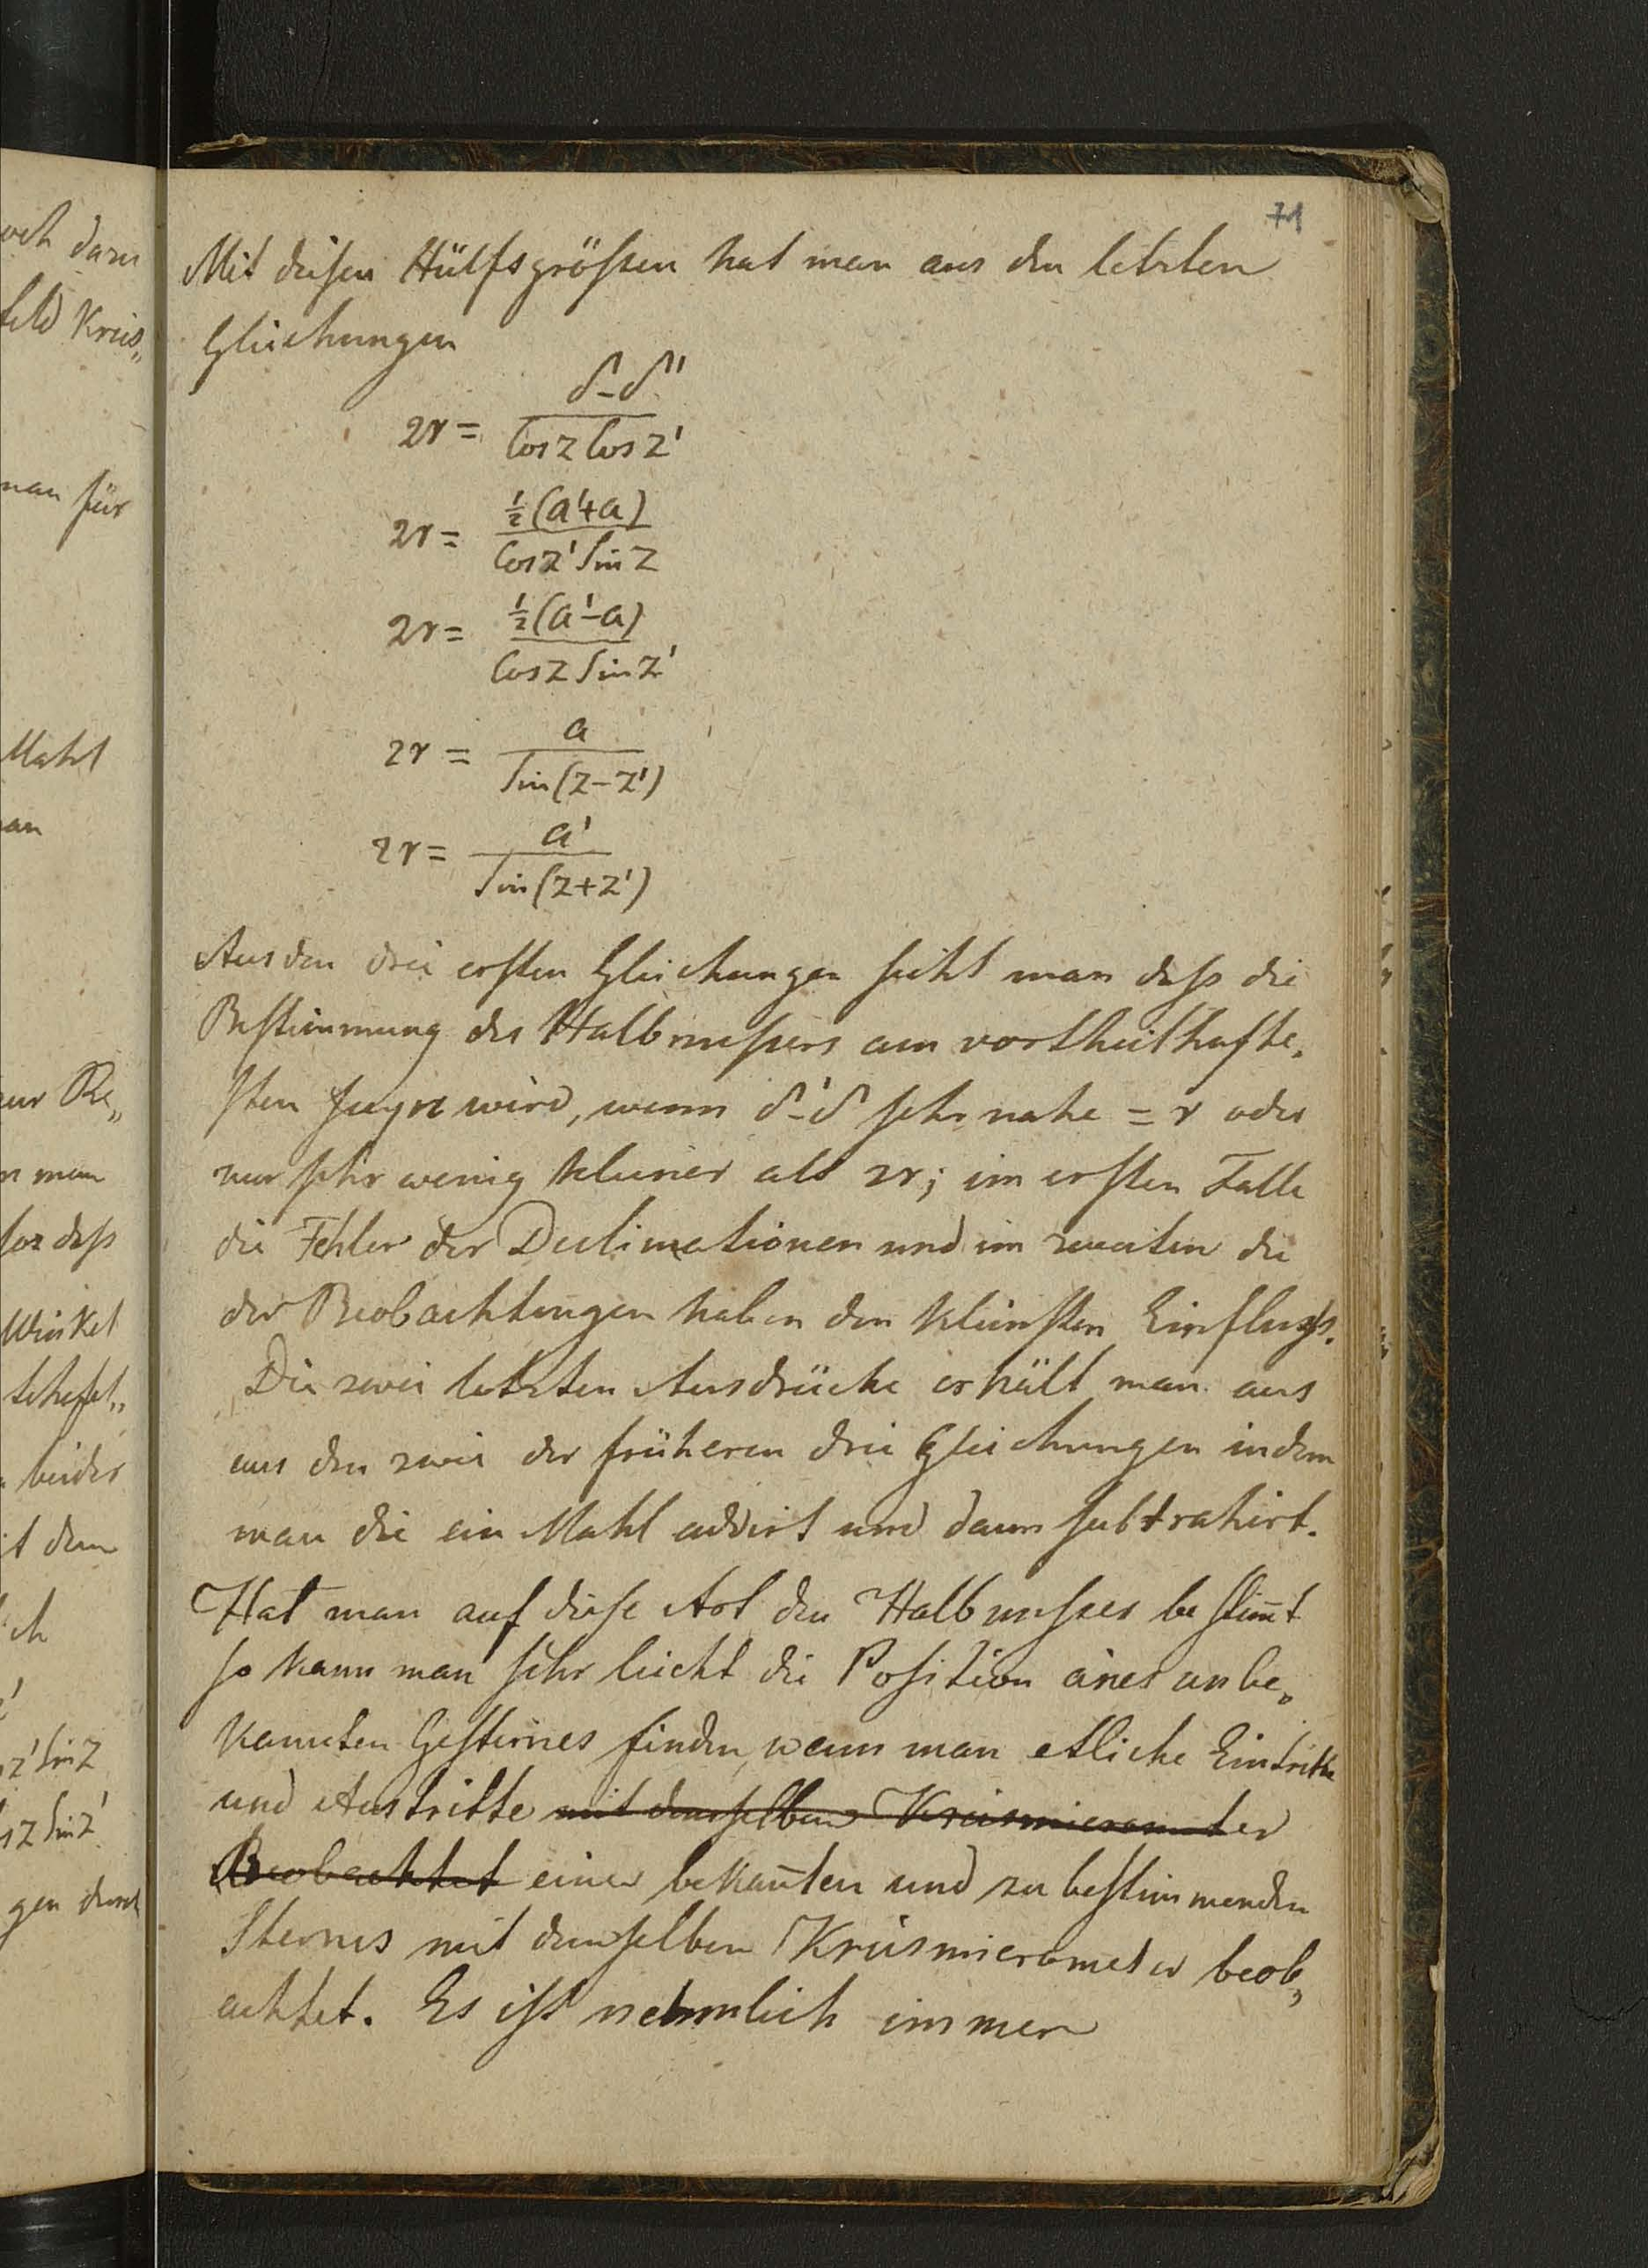 och dazu
feld Kreis„
man für
Mahl
man
zur Be„
n man
for daß
Winkel
beider
it dem
ich
z' Sin z
s z Sin z'
gen durch
71
Mit diesen Hülfsgrößen hat man aus den letzten
Gleichungen
2r = δ-δ'' / Cos z Cos z'
2r = ½(a'+a) / Cos z' Sin z
2r = ½(a'-a) / Cos z Sin z'
2r = a / Sin(z-z')
2r = a' / Sin(z+z')
Aus den drei ersten Gleichungen sieht man daß die
Bestimmung des Halbmessers am vortheilhafte„
sten seyn wird, wenn δ'-δ sehr nahe = r oder
nur sehr wenig kleiner als 2r; im ersten Falle
die Fehler der Declinationen und im zweiten die
der Beobachtungen haben den kleinsten Einfluß.
Die zwei letzten Ausdrücke erhält man aus
aus den zwei der früheren drei Gleichungen indem
man die ein Mahl addirt und dann subtrahirt.
Hat man auf diese Art den Halbmesser bestim̄t
so kann man sehr leicht die Position eines unbe„
kannten Gestirnes finden, wenn man etliche Eintritte
und Austritte mit demselben Kreismicrometer
Beobachtet eines bekan̄ten und zu bestimmenden
Sternes mit demselben Kreismicrometer beob„
achtet. Es ist nehmlich immer